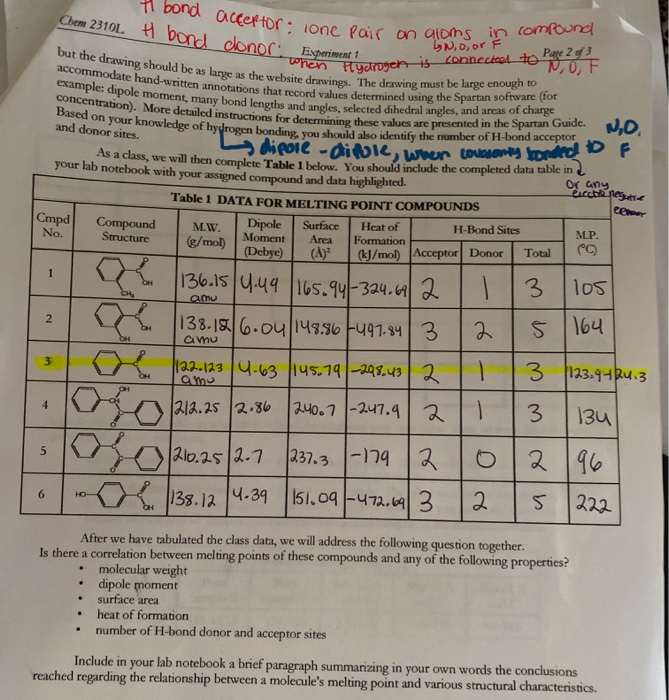 H bond acceptor: lone pair on atoms in compound
Chem 2310L
H bond donor:
↳ N, O, or F
Experiment 1
Page 2 of 3
when Hydrogen is connected to N, O, F
but the drawing should be as large as the website drawings. The drawing must be large enough to
accommodate hand-written annotations that record values determined using the Spartan software (for
example: dipole moment, many bond lengths and angles, selected dihedral angles, and areas of charge
concentration). More detailed instructions for determining these values are presented in the Spartan Guide.
Based on your knowledge of hydrogen bonding, you should also identify the number of H-bond acceptor
and donor sites.
dipole - dipole, when covalently bonded to N, O, F
As a class, we will then complete Table 1 below. You should include the completed data table in
your lab notebook with your assigned compound and data highlighted.
or any
electronegative
Table 1 DATA FOR MELTING POINT COMPOUNDS
Cmpd No. Compound Structure M.W. (g/mol) Dipole Moment (Debye) Surface Area (Å)² Heat of Formation (kJ/mol) H-Bond Sites M.P. (°C)
Acceptor Donor Total
1 O OH CH₃ 136.15 amu 4.49 165.94 -324.69 2 1 3 105
2 O OH OH 138.12 amu 6.04 148.86 -497.84 3 2 5 164
3 O OH 122.123 amu 4.63 145.79 -298.43 2 1 3 123.9-124.3
4 OH O 212.25 2.86 240.7 -247.9 2 1 3 134
5 O O 210.25 2.7 237.3 -179 2 0 2 96
6 HO O OH 138.12 4.39 151.09 -472.69 3 2 5 222
After we have tabulated the class data, we will address the following question together.
Is there a correlation between melting points of these compounds and any of the following properties?
• molecular weight
• dipole moment
• surface area
• heat of formation
• number of H-bond donor and acceptor sites
Include in your lab notebook a brief paragraph summarizing in your own words the conclusions
reached regarding the relationship between a molecule's melting point and various structural characteristics.